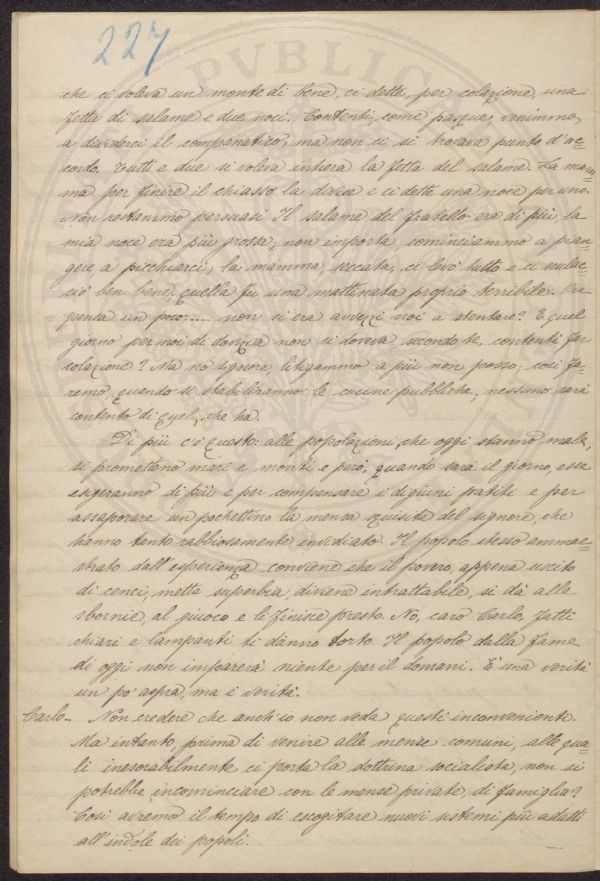 227
che ci voleva un monte di bene, ci dette, per colazione, una
fetta di salame e due noci. Contenti, come pasque, venimmo
a dividerci il companatico; ma non ci si trovava punto d'ac=
cordo. Tutti e due si voleva intiera la fetta del salame. La mam=
ma per finire il chiasso la divise e ci dette una noce per uno.
Non restammo persuasi. Il salame del fratello era di più, la
mia noce era più grossa, non importa, cominciammo a pian=
gere, a picchiarci; la mamma, seccata, ci levò tutto e ci sculac=
ciò ben bene; quella fu una mattinata proprio terribile. Ora
pensa un poco:..... non si era avvezzi noi a stentare? E quel
giorno per noi di dovizia non si doveva, secondo te, contenti far
colazione? Ma no signore, litigammo a più non posso; così fa=
remo, quando si stabiliranno le cucine pubbliche, nessuno sarà
contento di quel, che ha.
Di più c'è questo: alle popolazioni, che oggi stanno male,
si promettono mari e monti e però, quando sarà il giorno, esse
esigeranno di più e per compensare i digiuni patiti e per
assaporare un pochettino la mensa squisita del signore, che
hanno tanto rabbiosamente invidiato. Il popolo stesso ammae=
strato dall'esperienza conviene che il povero, appena uscito
di cenci, mette superbia, diviene intrattabile, si dà alle
sbornie, al giuoco e li finisce presto. No, caro Carlo, fatti
chiari e lampanti ti dànno torto. Il popolo dalla fame
di oggi non imparerà niente per il domani. È una verità
un po' aspra, ma è verità.
Carlo - Non credere che anch'io non veda questi inconvenienti.
Ma intanto, prima di venire alle mense comuni, alle qua=
li inesorabilmente ci porta la dottrina socialista, non si
potrebbe incominciare con le mense private di famiglia?
Così avremo il tempo di escogitare nuovi sistemi più adatti
all'indole dei popoli.